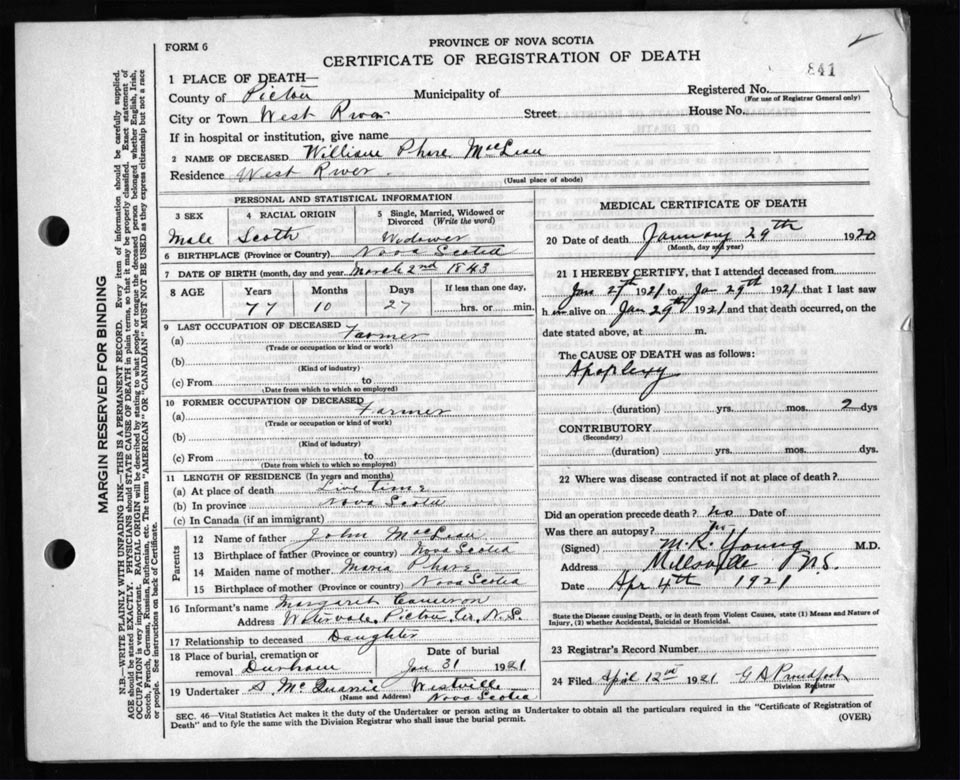 FORM 6
PROVINCE OF NOVA SCOTIA
CERTIFICATE OF REGISTRATION OF DEATH
841
1 PLACE OF DEATH—
County of Pictou Municipality of Registered No.
(For use of Registrar General only)
City or Town West River Street House No.
If in hospital or institution, give name
2 NAME OF DECEASED William Phare MacLean
Residence West River.
(Usual place of abode)
PERSONAL AND STATISTICAL INFORMATION
3 SEX 4 RACIAL ORIGIN 5 Single, Married, Widowed or Divorced (Write the word)
Male Scoth Widower
6 BIRTHPLACE (Province or Country) Nova Scotia
7 DATE OF BIRTH (month, day and year) March 2nd 1843
8 AGE Years Months Days If less than one day,
77 10 27 hrs. or min.
9 LAST OCCUPATION OF DECEASED
(a) Farmer
(Trade or occupation or kind of work)
(b)
(Kind of industry)
(c) From to
(Date from which to which so employed)
10 FORMER OCCUPATION OF DECEASED
(a) Farmer
(Trade or occupation or kind of work)
(b)
(Kind of industry)
(c) From to
(Date from which to which so employed)
11 LENGTH OF RESIDENCE (In years and months)
(a) At place of death Live time
(b) In province Nova Scotia
(c) In Canada (if an immigrant)
Parents
12 Name of father John MacLean
13 Birthplace of father (Province or country) Nova Scotia
14 Maiden name of mother Maria Phare
15 Birthplace of mother (Province or country) Nova Scotia
16 Informant's name Margaret Cameron
Address Watervale, Pictou Co. N.S.
17 Relationship to deceased Daughter
18 Place of burial, cremation or removal Durham Date of burial Jan 31 1921
19 Undertaker S McQuarrie Westville Nova Scotia
(Name and Address)
MEDICAL CERTIFICATE OF DEATH
20 Date of death January 29th 1920
(Month, day and year)
21 I HEREBY CERTIFY, that I attended deceased from
Jan 27th 1921 to Jan 29th 1921 that I last saw
him alive on Jan 29th 1921 and that death occurred, on the
date stated above, at m.
The CAUSE OF DEATH was as follows:
Apoplexy
(duration) yrs. mos. 2 dys
CONTRIBUTORY
(Secondary)
(duration) yrs. mos. dys.
22 Where was disease contracted if not at place of death?
Did an operation precede death? no Date of
Was there an autopsy? no
(Signed) M.R. Young M.D.
Address Millsville N.S.
Date Apr 4th 1921
State the Disease causing Death, or in death from Violent Causes, state (1) Means and Nature of Injury, (2) whether Accidental, Suicidal or Homicidal.
23 Registrar's Record Number
24 Filed April 12th 1921 G A Proudfoot
Division Registrar
SEC. 46—Vital Statistics Act makes it the duty of the Undertaker or person acting as Undertaker to obtain all the particulars required in the "Certificate of Registration of
Death" and to fyle the same with the Division Registrar who shall issue the burial permit.
(OVER)
MARGIN RESERVED FOR BINDING
N.B.—WRITE PLAINLY WITH UNFADING INK—THIS IS A PERMANENT RECORD. Every item of information should be carefully supplied.
AGE should be stated EXACTLY. PHYSICIANS should STATE CAUSE OF DEATH in plain terms, so that it may be properly classified. Exact statement of
OCCUPATION is very important. RACIAL ORIGIN will be described by stating to what people or tongue the deceased person belonged whether English, Irish,
Scotch, French, German, Russian, Ruthenian, etc. The terms "AMERICAN" OR "CANADIAN" MUST NOT BE USED as they express citizenship but not a race
or people. See instructions on back of Certificate.